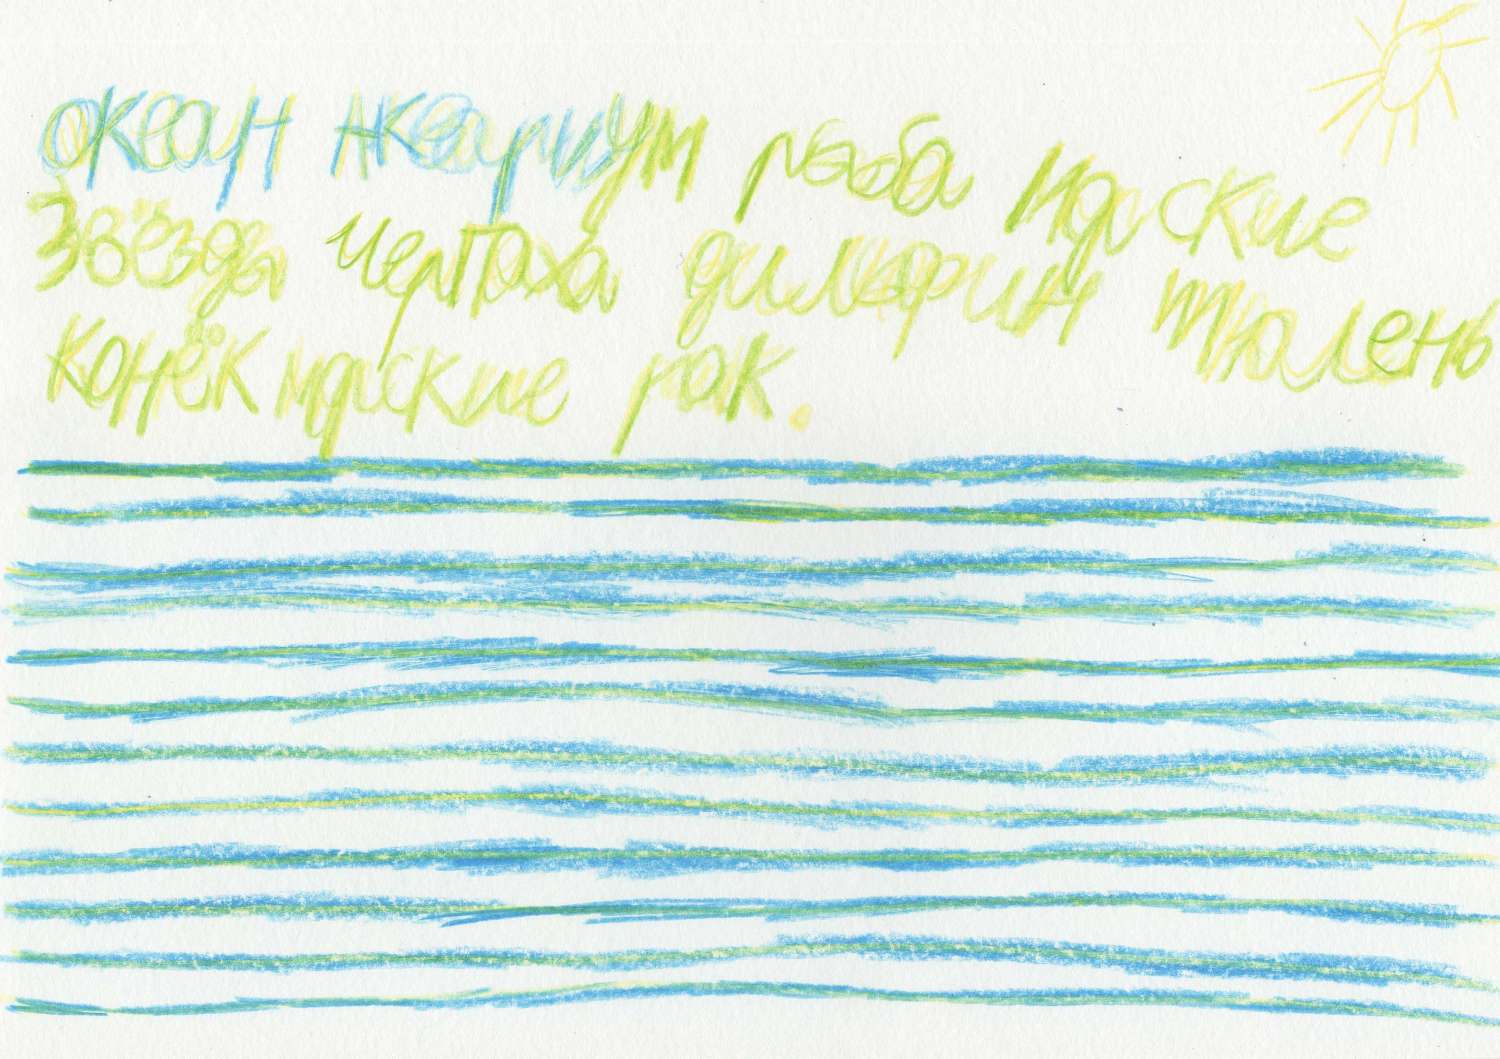 океан аквариум рыба морские
звёзды черпаха дильфин тюлень
конёк морские рак.